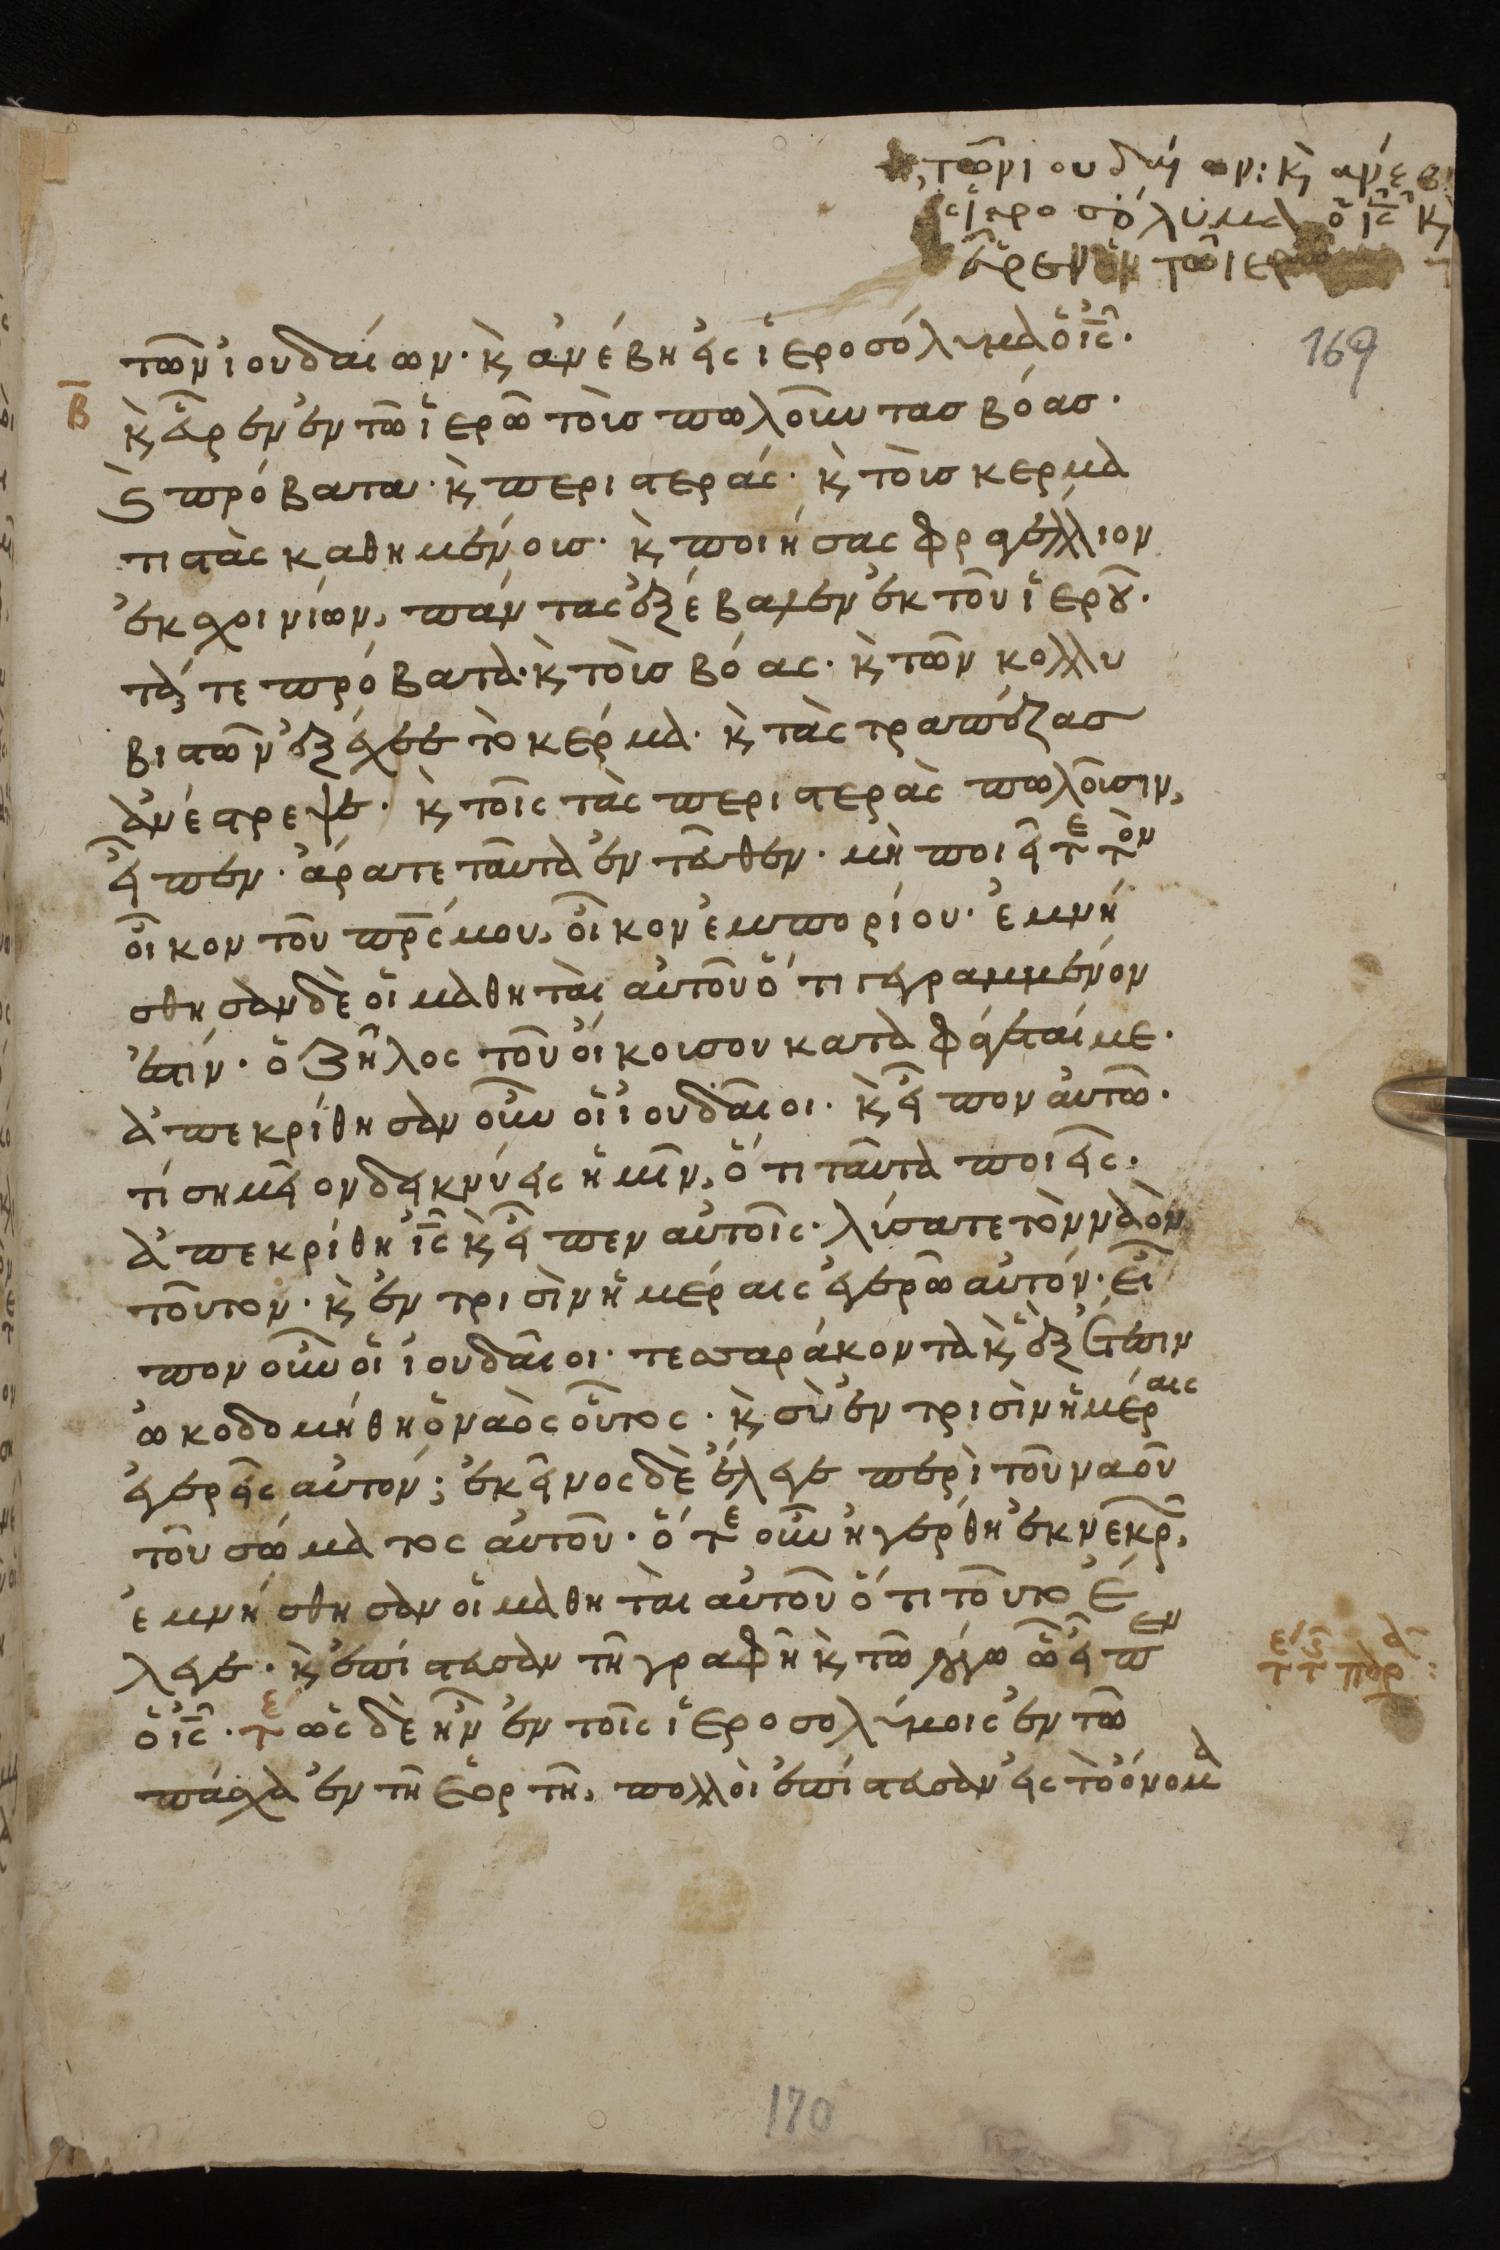 τῶν ιουδαί ων: κ(αὶ) ανέβ
ἱεροσόλυμα ὁ ι̅ς̅ κ(αὶ)
εὗρεν ἐν τῶ ιερ
169
τῶν ἰουδαίων· κ(αὶ) ἀνέβη εἰς ἱεροσόλυμα ὁ ι̅ς̅·
β̅
κ(αὶ) εὗρεν ἐν τῶ ἱερῶ τοὺς πωλοῦντας βόας·
κ(αὶ) πρόβατα· κ(αὶ) περιστεράς· κ(αὶ) τοὺς κερμα
τιστὰς καθημένους· κ(αὶ) ποιήσας φραγέλλιον
ἐκ σχοινίων, πάντας ἐξέβαλεν ἐκ τοῦ ἱεροῦ·
τά τε πρόβατα· κ(αὶ) τοὺς βόας· κ(αὶ) τῶν κολλυ
βιστῶν ἐξέχεε τὸ κέρμα· κ(αὶ) τὰς τραπέζας
ἀνέστρεψε· κ(αὶ) τοῖς τὰς περιστερὰς πωλοῦσιν,
εἶπεν· ἄρατε ταῦτα ἐντεῦθεν· μὴ ποιεῖτε τὸν
οἶκον τοῦ π̅ρ̅ς̅ μου, οἶκον ἐμπορίου· ἐμνή
σθησαν δὲ οἱ μαθηταὶ αὐτοῦ ὅτι γεγραμμένον
ἐστίν· ὁ ζῆλος τοῦ οἴκου σου καταφάγεταί με·
ἀπεκρίθησαν οὖν οἱ ἰουδαῖοι· κ(αὶ) εἶπον αὐτῶ·
τί σημεῖον δεικνύεις ἡμῖν, ὅτι ταῦτα ποιεῖς·
ἀπεκρίθη ι̅ς̅ κ(αὶ) εἶπεν αὐτοῖς· λύσατε τὸν ναὸν
τοῦτον· κ(αὶ) ἐν τρισὶν ἡμέραις ἐγερῶ αὐτόν· εἶ
πον οὖν οἱ ἰουδαῖοι· τεσσαράκοντα κ(αὶ) ἓξ ἔτεσιν
ὠκοδομήθη ὁ ναὸς οὗτος· κ(αὶ) σὺ ἐν τρισὶν ἡμέραις
ἐγερεῖς αὐτόν; ἐκεῖνος δὲ ἔλεγε περὶ τοῦ ναοῦ
τοῦ σώματος αὐτοῦ· ὅτε οὖν ἠγέρθη ἐκ νεκρ(ῶν),
ἐμνήσθησαν οἱ μαθηταὶ αὐτοῦ ὅτι τοῦτο ἔ
λεγε· κ(αὶ) ἐπίστευσαν τῆ γραφῆ κ(αὶ) τῶ λόγω ὧ εἶπεν
ὁ ι̅ς̅· τε ὡς δὲ ἦν ἐν τοῖς ἱεροσολύμοις ἐν τῶ
πάσχα ἐν τῆ ἑορτῆ, πολλοὶ ἐπίστευσαν εἰς τὸ ὄνομα
170